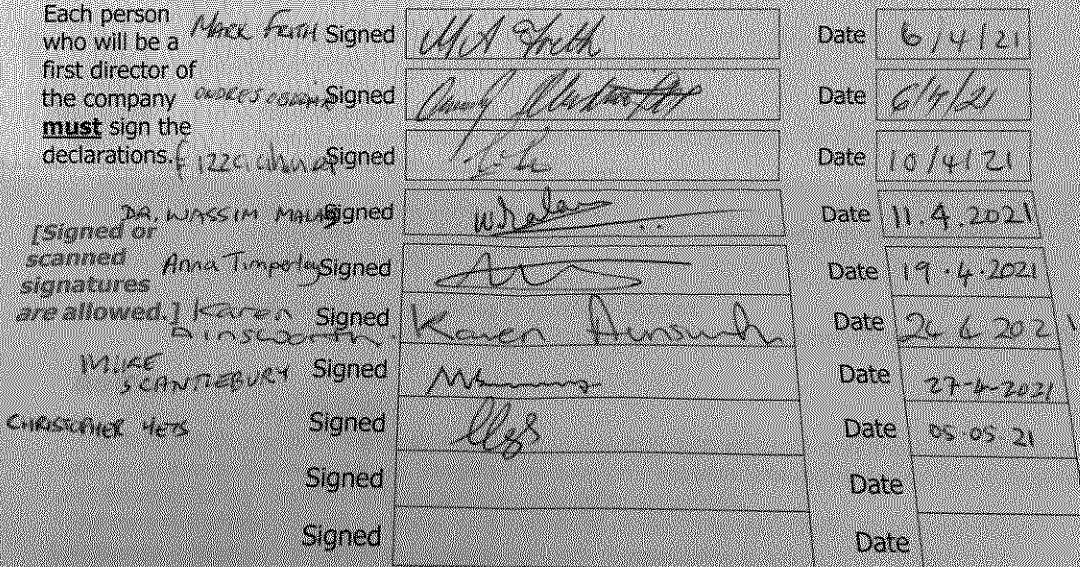 Each person
who will be a
first director of
the company
must sign the
declarations.
[Signed or
scanned
signatures
are allowed.]
MARK FRITH Signed M A Frith Date 6/4/21
Signed Date 6/4/21
Signed Date 10/4/21
DR. WASSIM Signed Date 11.4.2021
Anna Timperley Signed Date 19.4.2021
Karen Ainsworth. Signed Karen Ainsworth Date 24 4 2021
MIKE
SCANTLEBURY Signed Date 27-4-2021
CHRISTOPHER Signed Date 05.05.21
Signed Date
Signed Date